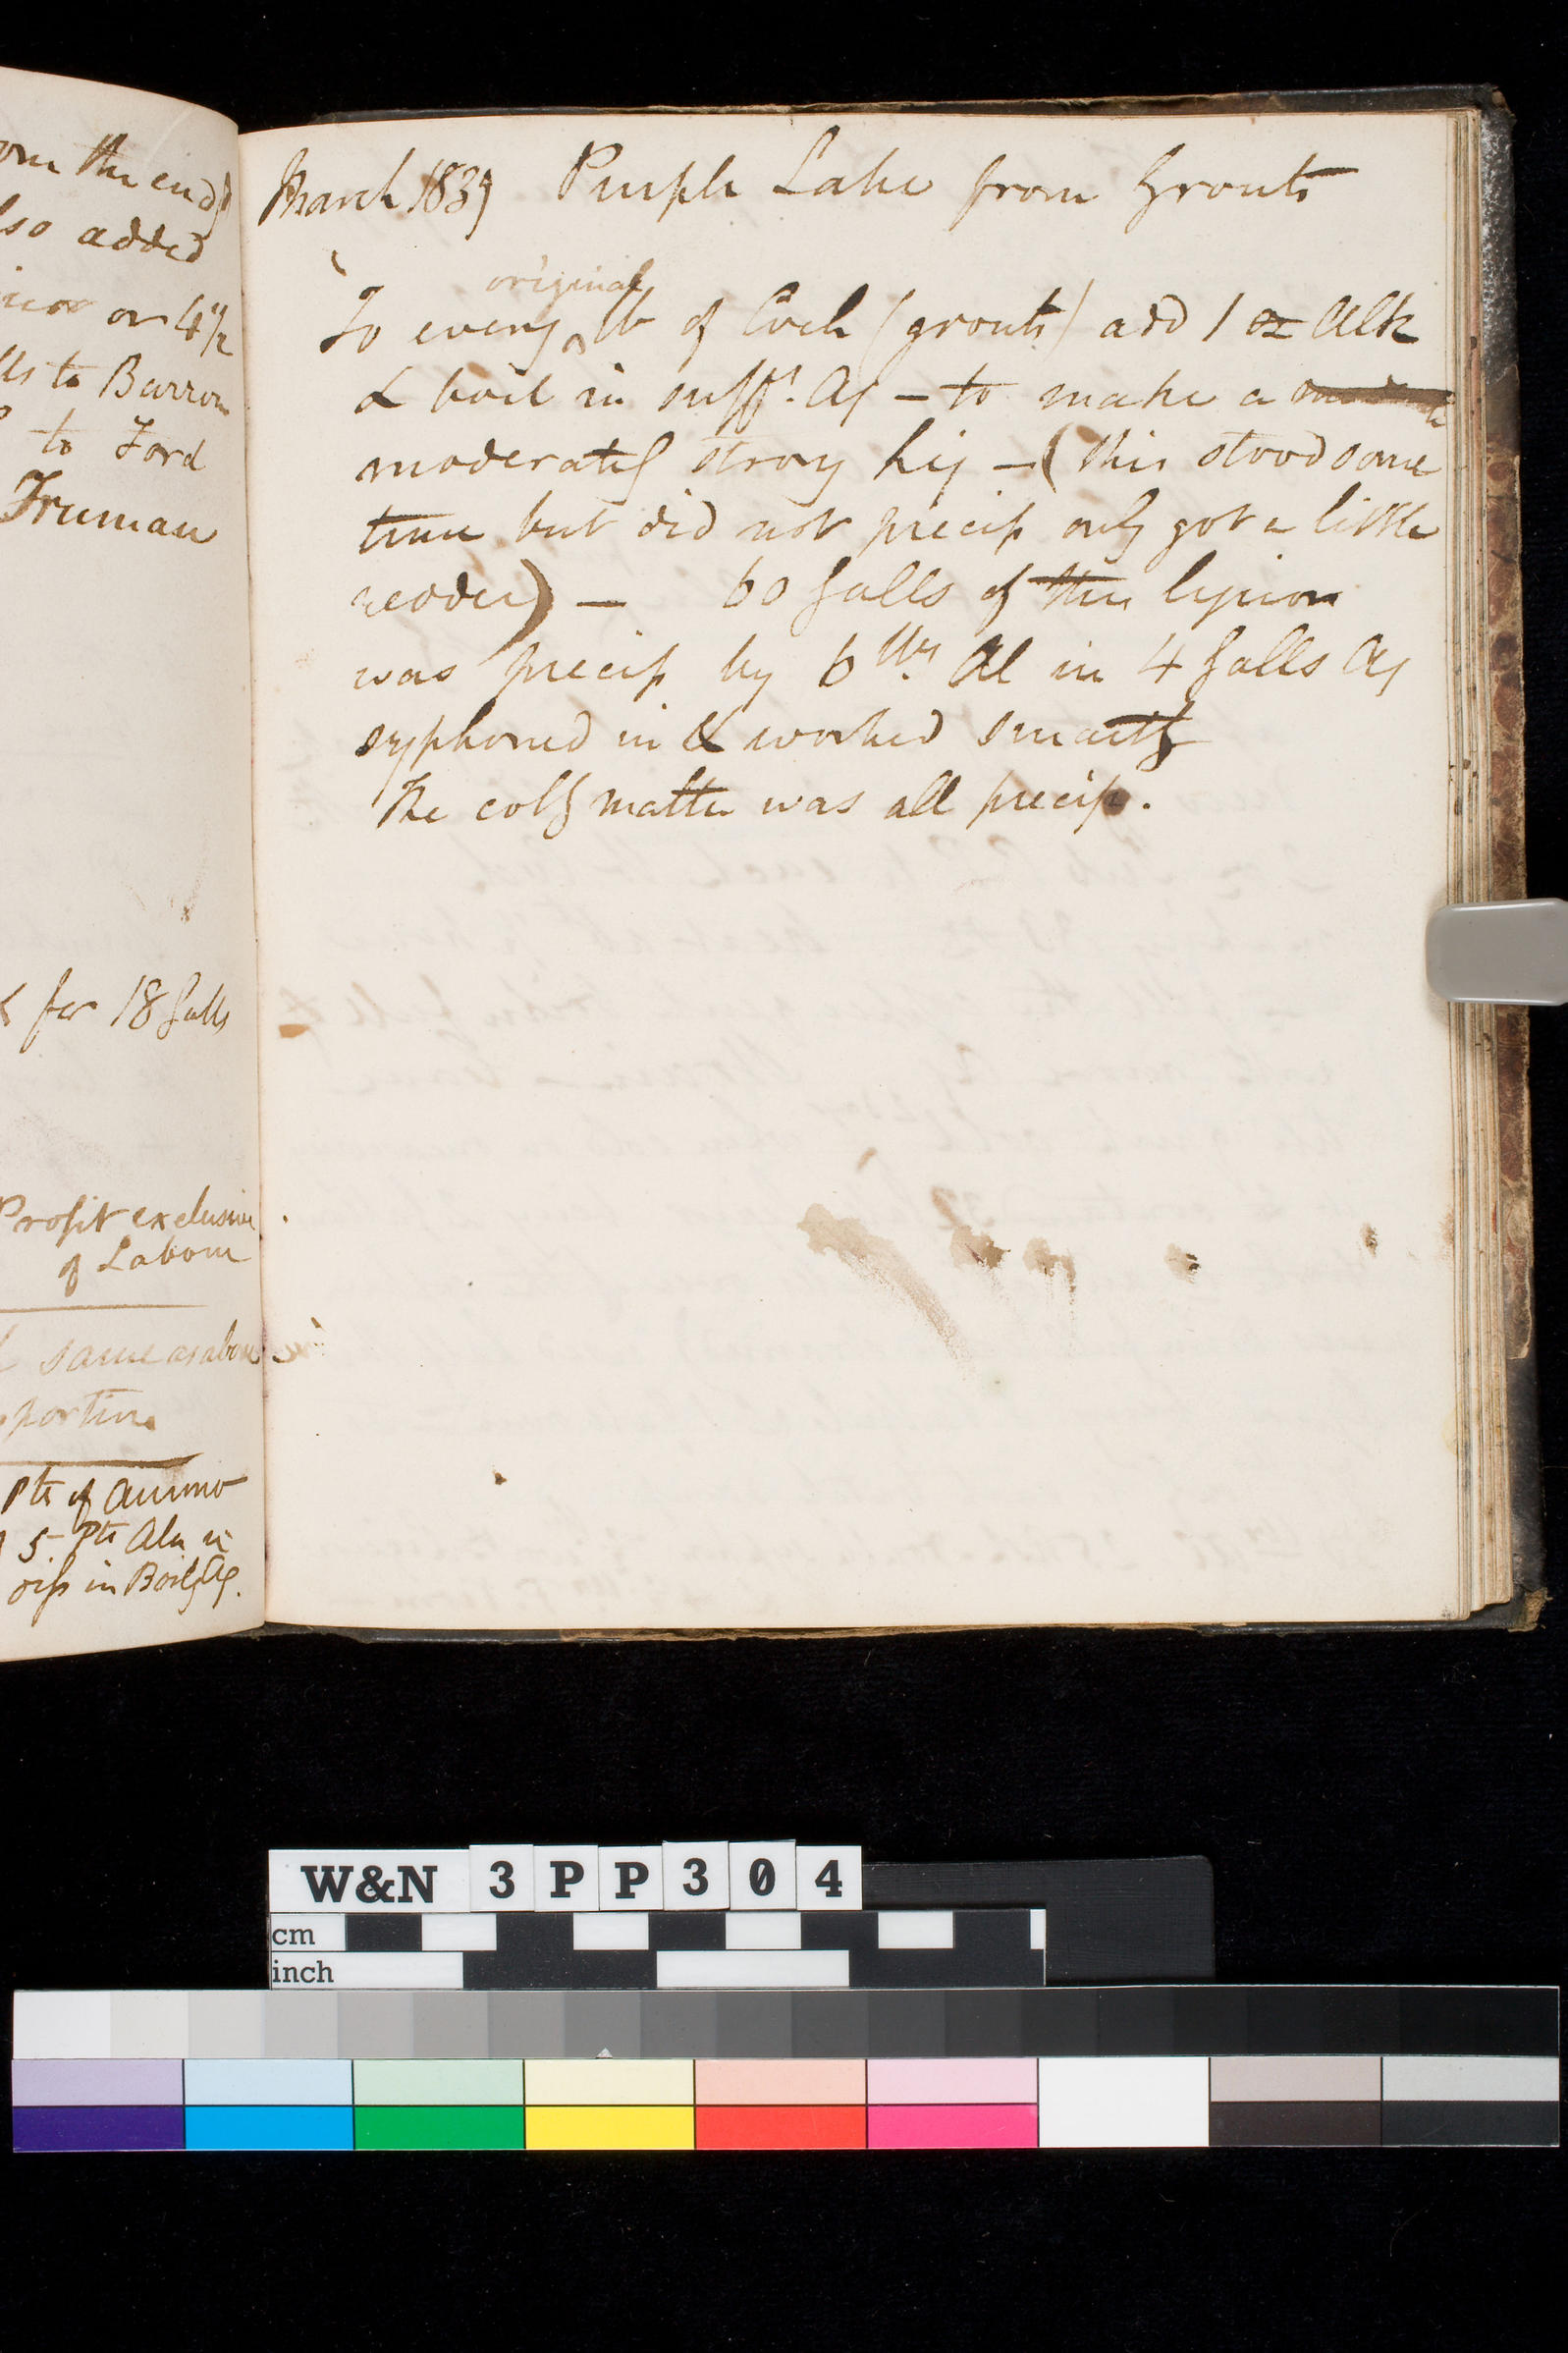 om the end)
lso added
or 4½
lls to Barrow
to Ford
Truman
for 18 Galls
Profit exclusive
of Labour
same as above
portion
Pts of Ammo
5 Pts Alu in
diss in Boilg Aq.
March 1839 Purple Lake from Grouts
original
To every ^ lb of Coch (grouts) add 1 oz Alk
& boil in sufft. Aq – to make a
moderately strong liq – (this stood some
time but did not precip only got a little
redder) – 60 Galls of this liquor
was precip by 6 lbs. Al in 4 Galls Aq
syphoned in & worked smartly
The colg matter was all precip.
W&N 3PP304
cm
inch